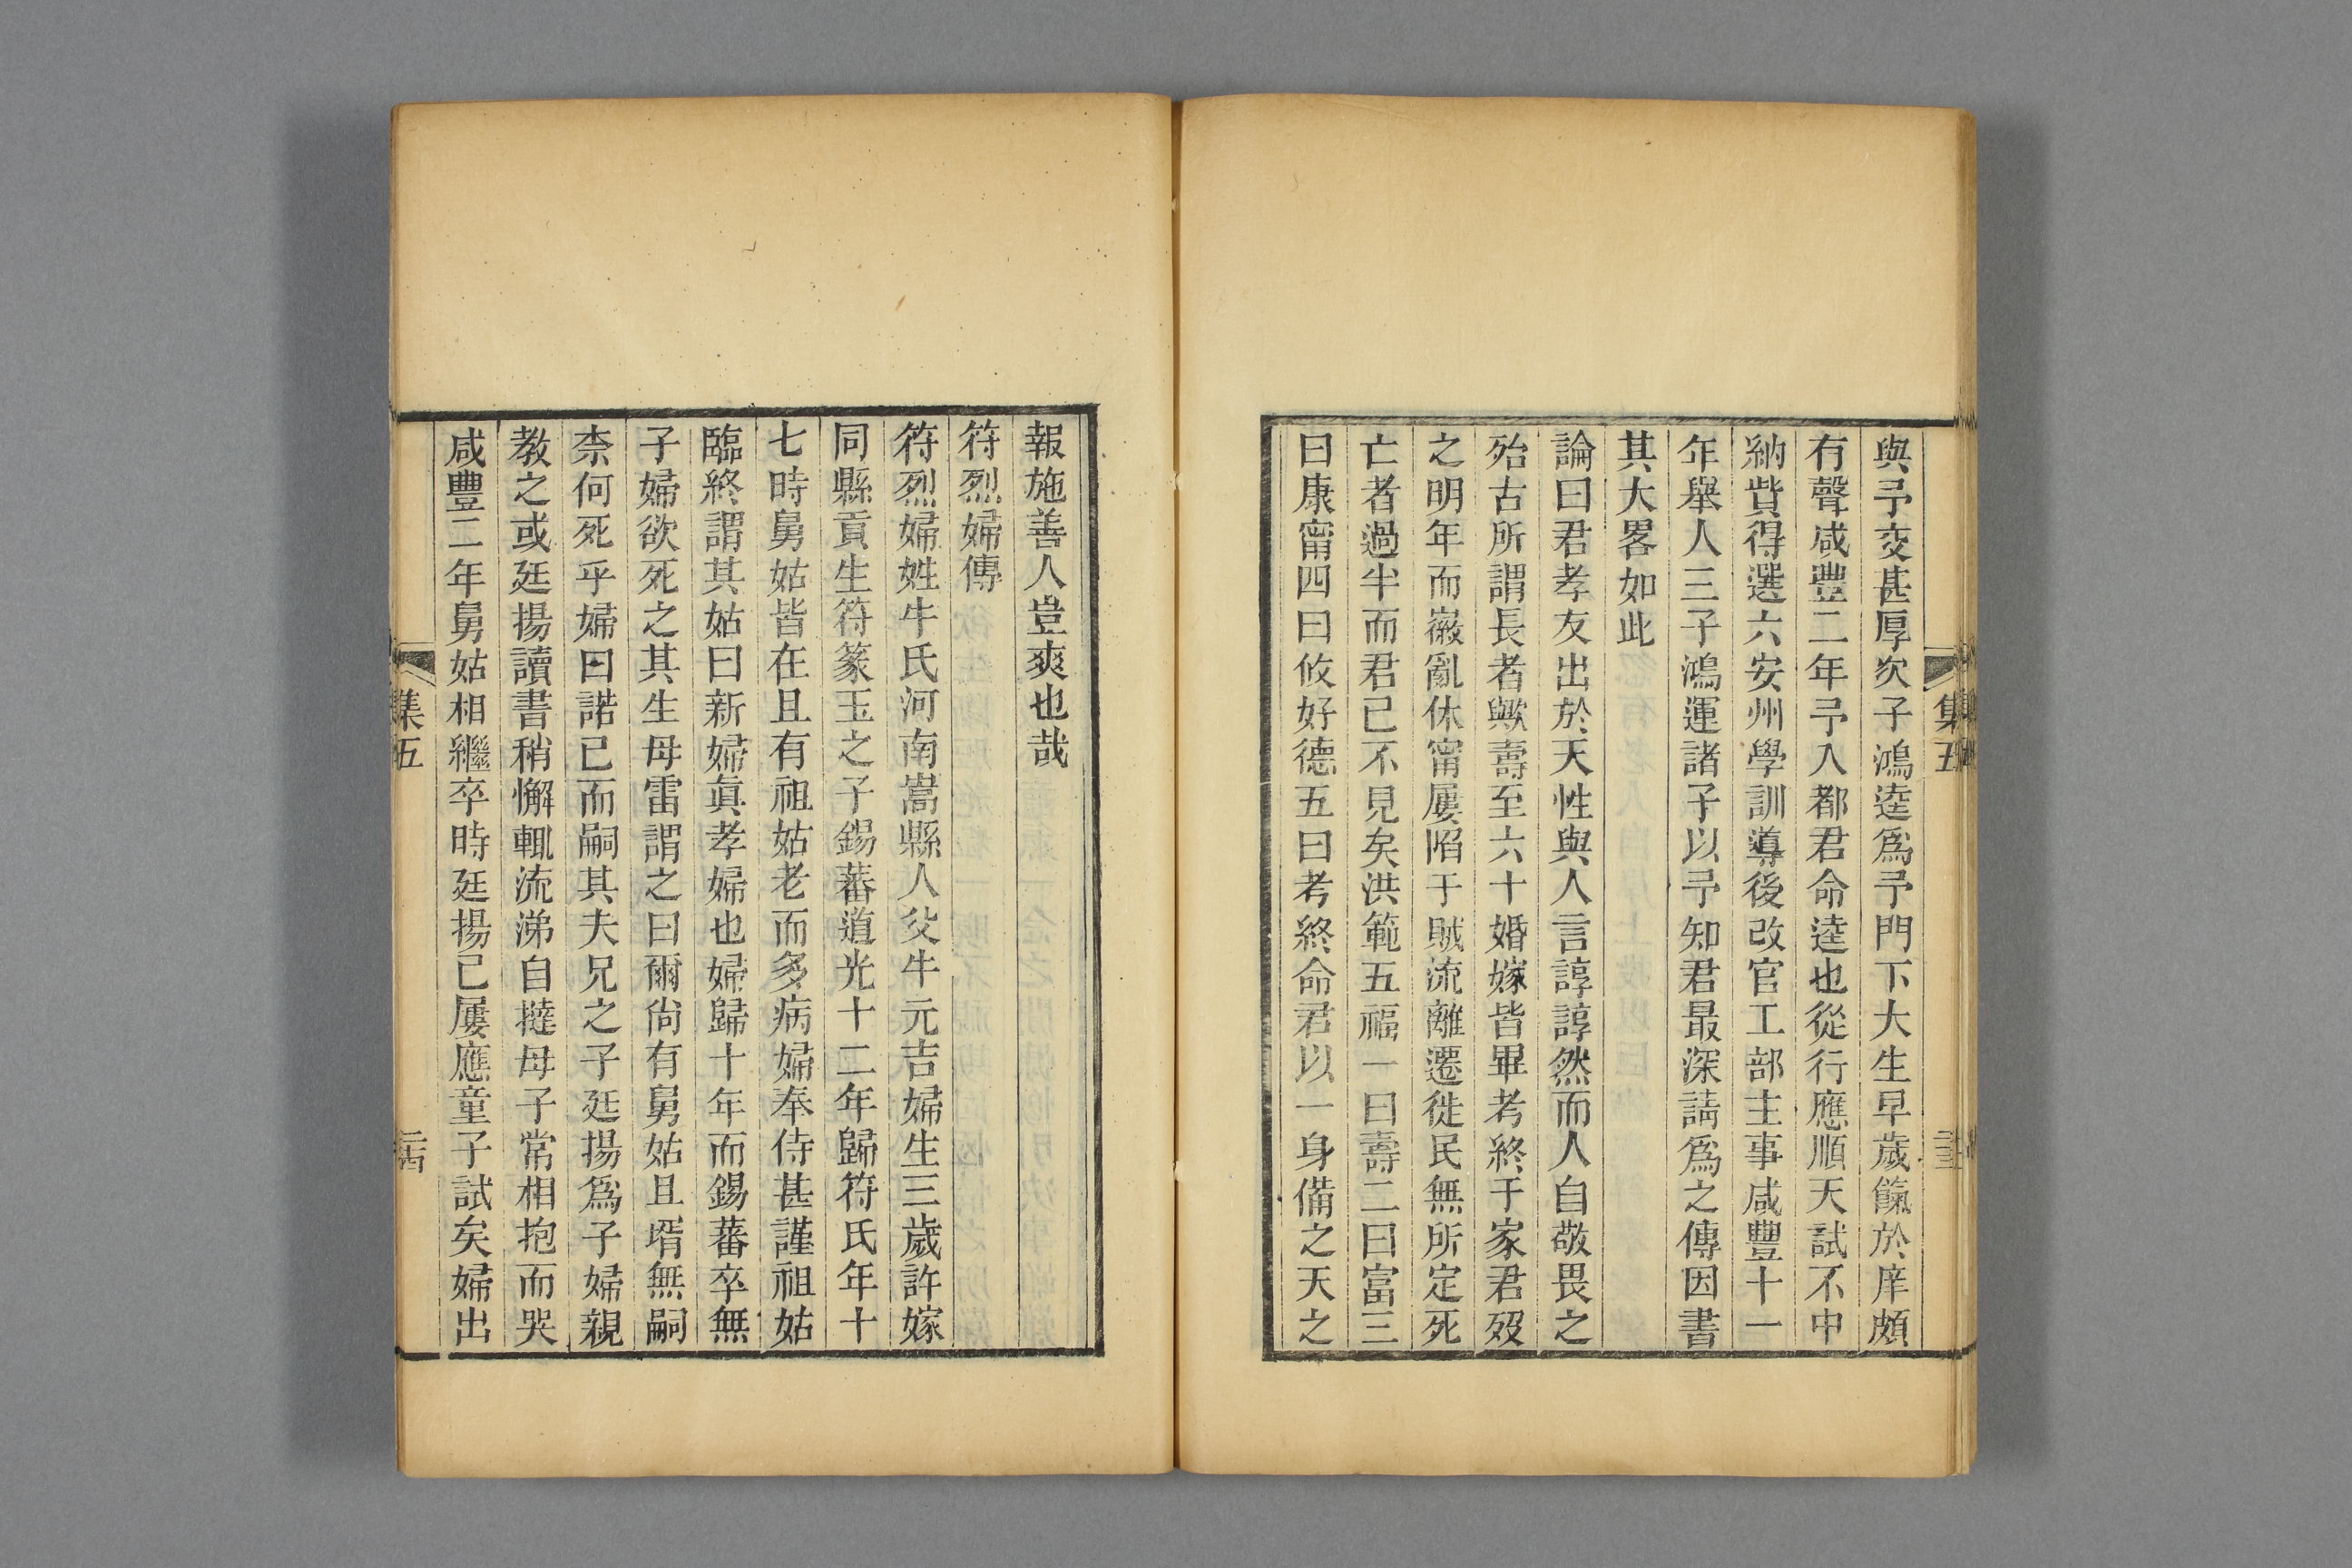 與予交甚厚次子鴻逵爲予門下大生早歲餼於庠頗
有聲咸豐二年予入都君命逵也從行應順天試不中
納貲得選六安州學訓導後改官工部主事咸豐十一
年舉人三子鴻運諸子以予知君最深請爲之傳因書
其大畧如此
論曰君孝友出於天性與人言諄諄然而人自敬畏之
殆古所謂長者歟壽至六十婚嫁皆畢考終于家君歿
之明年而嶶亂休甯屢陷于賊流離遷徙民無所定死
亡者過半而君已不見矣洪範五福一曰壽二曰富三
曰康甯四曰攸好德五曰考終命君以一身備之天之
集五
報施善人豈爽也哉
符烈婦傳
符烈婦姓牛氏河南嵩縣人父牛元吉婦生三歲許嫁
同縣貢生符篆玉之子錫蕃道光十二年歸符氏年十
七時舅姑皆在且有祖姑老而多病婦奉侍甚謹祖姑
臨終謂其姑曰新婦眞孝婦也婦歸十年而錫蕃卒無
子婦欲死之其生母雷謂之曰爾尙有舅姑且壻無嗣
柰何死乎婦曰諾已而嗣其夫兄之子廷揚爲子婦親
教之或廷揚讀書稍懈輒流涕自撻母子常相抱而哭
咸豐二年舅姑相繼卒時廷揚已屢應童子試矣婦出
集五